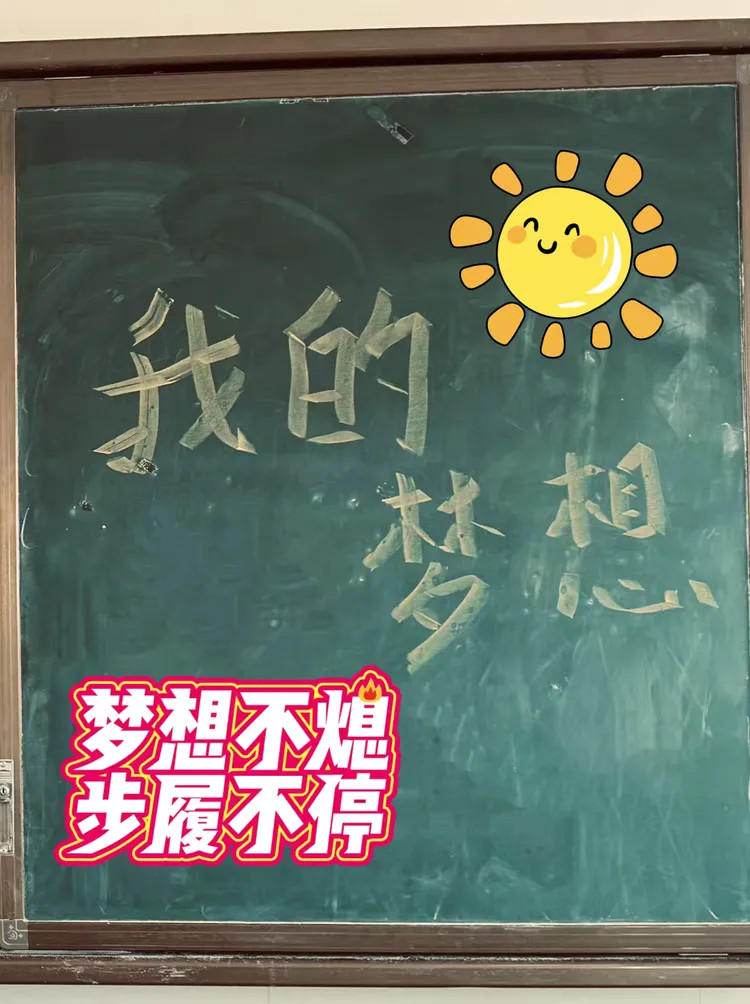 我的
梦想
梦想不熄
步履不停